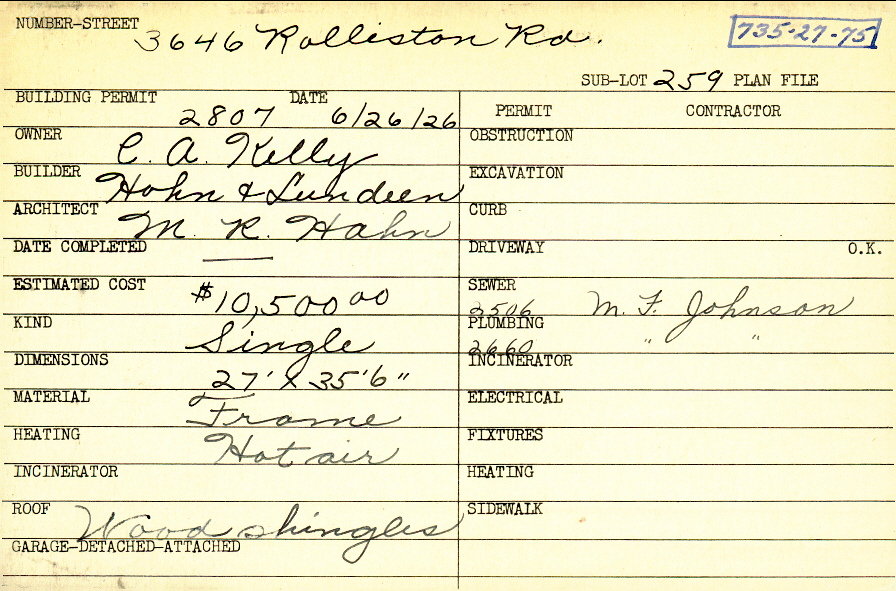 NUMBER-STREET 3646 Rolliston Rd. 735-27-75
SUB-LOT 259 PLAN FILE
BUILDING PERMIT 2807 DATE 6/26/26
PERMIT CONTRACTOR
OWNER C. A. Kelly
OBSTRUCTION
BUILDER Hohn & Lundeen
EXCAVATION
ARCHITECT M. R. Hahn
CURB
DATE COMPLETED —
DRIVEWAY O.K.
ESTIMATED COST $10,500 00
SEWER 2506 M. F. Johnson
KIND Single
PLUMBING 2660 " "
DIMENSIONS 27' X 35'6"
INCINERATOR
MATERIAL Frame
ELECTRICAL
HEATING Hot air
FIXTURES
INCINERATOR
HEATING
ROOF Wood shingles
SIDEWALK
GARAGE-DETACHED-ATTACHED